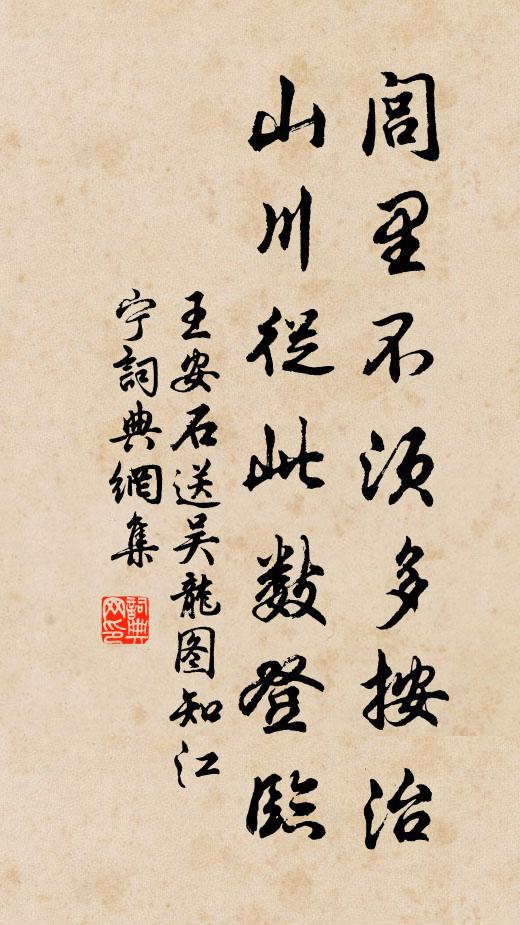 閭里不須多按治
山川從此數登臨
王安石送吴龍图知江
宁詞典網集
詞典
网印